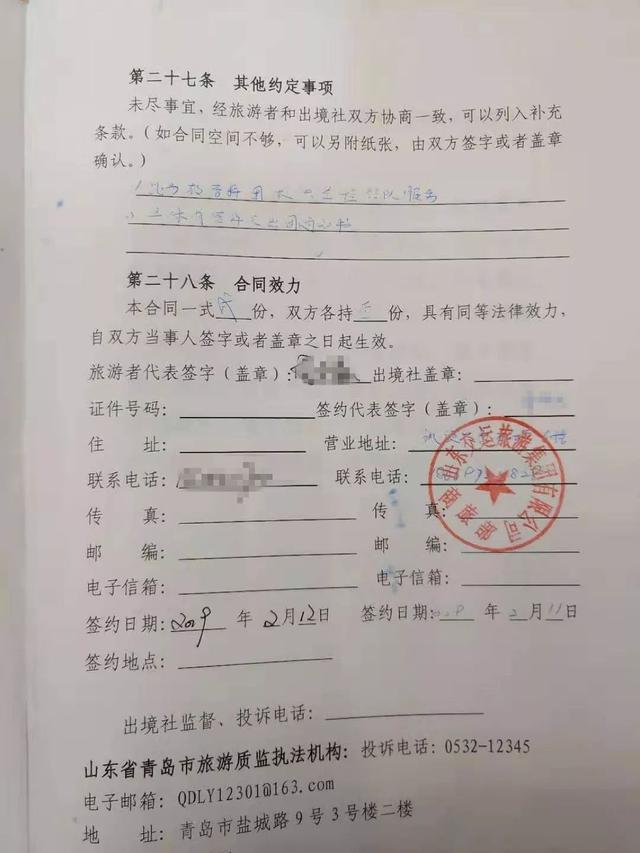 第二十七条 其他约定事项
未尽事宜，经旅游者和出境社双方协商一致，可以列入补充
条款。（如合同空间不够，可以另附纸张，由双方签字或者盖章
确认。）
第二十八条 合同效力
本合同一式 份，双方各持 份，具有同等法律效力，
自双方当事人签字或者盖章之日起生效。
旅游者代表签字（盖章）： 出境社盖章：
证件号码： 签约代表签字（盖章）：
住 址： 营业地址：
联系电话： 联系电话：
山东交运旅游集团有限公司
传 真： 传 真
邮 编： 邮 编：
电子信箱： 电子信箱：
签约日期：2019 年 2月12日 签约日期： 年 2月11日
签约地点：
出境社监督、投诉电话：
山东省青岛市旅游质监执法机构：投诉电话：0532-12345
电子邮箱：QDLY12301@163.com
地 址：青岛市盐城路9号3号楼二楼